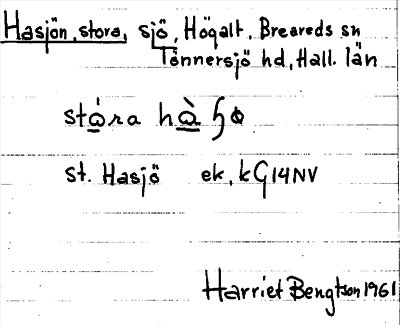 Hasjön, stora, sjö, Högalt, Breareds sn
Tönnersjö hd, Hall. län
st. Hasjö ek, kG14NV
Harriet Bengtson 1961